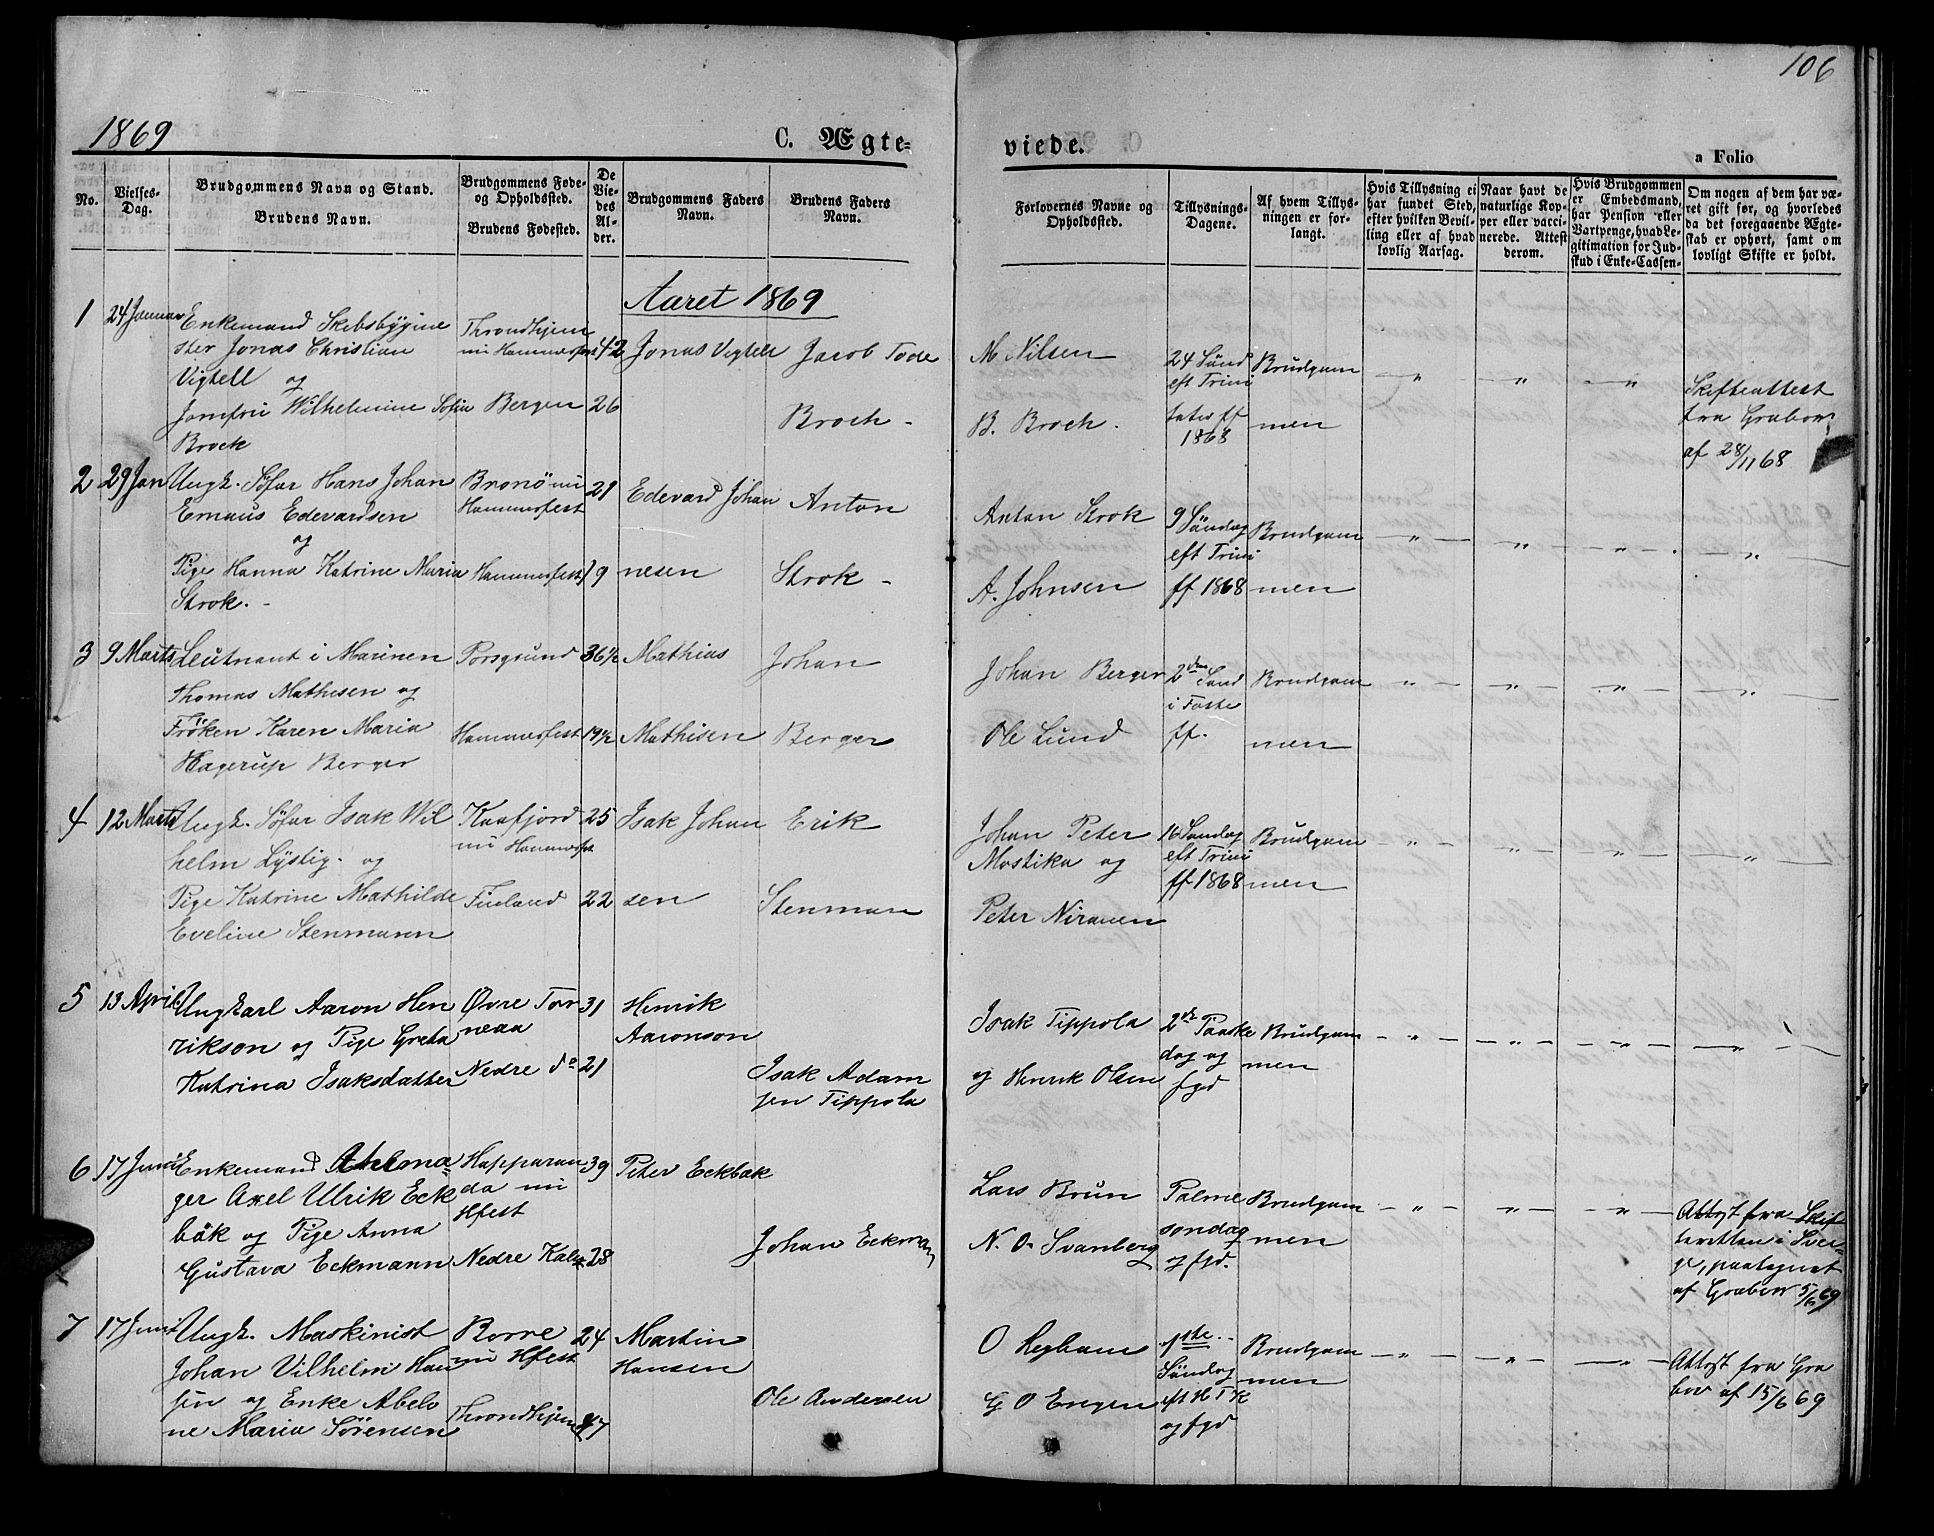 106
1869
C. Ægte-
viede.
a Folio
No.
Vielses-
Dag.
Brudgommens Navn og Stand.
Brudens Navn.
Brudgommens Føde-
og Opholdssted.
Brudens Fødested.
De
Vie-
des
Al-
der.
Brudgommens Faders
Navn.
Brudens Faders
Navn.
Forlovernes Navne og
Opholdssted.
Tillysnings-
Dagene.
Af hvem Tillys-
ningen er for-
langt.
Hvis Tillysning ei
har fundet Sted,
efter hvilken Bevil-
ling eller af hvad
lovlig Aarsag.
Naar havt de
naturlige Kop-
per eller vacci-
nerede. Attest
derom.
Hvis Brudgommen
er Embedsmand,
har Pension eller
Vartpenge, hvad Le-
gitimation for Ind-
skud i Enke-Cassen-
Om nogen af dem har væ-
ret gift før, og hvorledes
da det foregaaende Ægte-
skab er ophørt, samt om
lovligt Skifte er holdt.
Aaret 1869
1 24 Januar Enkemand Skibsbygme
ster Jonas Christian
Vigtell og
Jomfru Wilhelmine Sofia
Brock
Throndhjem
nu Hammerfest 42
Bergen 26
Jonas Vigtell
Jacob Tode
Broch -
M Nilsen
B. Broch.
24 Sønd
eft Trini
tatis ff
1868
Brudgom
men
" " "
Skifteattest
fra Grabow
af 28/11 68
2 29 Jan Ungk. Söfar Hans Johan
Emaus Edevardsen
og
Pige Hanna Katrine Maria
Strok. -
Bronö nu
Hammerfest 21
Hammerfest 19
Edevard Johan
nesen
Anton
Strok -
Anton Strok
A. Johnsen
9 Söndag
eft Trini
ff 1868
Brudgom
men
" " " "
3 9 Marts Leutnant i Marinen
Thomas Mathisen og
Fröken Karen Maria
Hagerup Berger
Porsgrund 36 1/2
Hammerfest 19 1/2
Mathias
Mathisen
Johan
Berger
Johan Berger
Ole Lund
2den Sønd
i Faste
ff.
Brudgom
men
" " " "
4 12 Marts Ungk. Söfar Isak Wil
helm Lystig. og
Pige Katrine Mathilde
Eveline Stenmann
Kaafjord
nu Hammerfest 25
Finland 22
Isak Johan
sen
Erik
Stenman
Johan Peter
Mostika og
Peter Niranen
16 Søndag
eft Trini
ff 1868
Brudgom
men
" " " "
5 13 April Ungkarl Aaron Hen
rikson og Pige Greta
Katrina Isaksdatter
Øvre Tor
neaa 31
Nedre do 21
Henrik
Aaronson
Isak Adam
sen Tippola
Isak Tippola
og Henrik Olsen
2den Paaske
dag og
fgd
Brudgom
men
" " " "
6 17 Juni Enkemand
ger Axel Ulrik Eck
bäk og Pige Anna
Gustava Eckmann
Happaran
da nu
Hfest 39
Nedre Kalix 28
Peter Eckbäk
Johan Eckman
Lars Brun
N. O. Svanberg
Palme
søndag
og fgd.
Brudgom
men
" " "
Attest fra Skif
teretten i Sver-
ge, paategnet
af Grabow 5/6 69
7 17 Juni Ungk. Maskinist
Johan Vilhelm Han
sen og Enke Abelo
ne Maria Sörensen
Borre
nu Hfest 24
Throndhjem 27
Martin
Hansen
Ole Andersen
G O Engen
1ste
Söndag
eft H T K
og fgd
Brudgom
men
" " "
Attest fra Gra
bow af 15/6 69